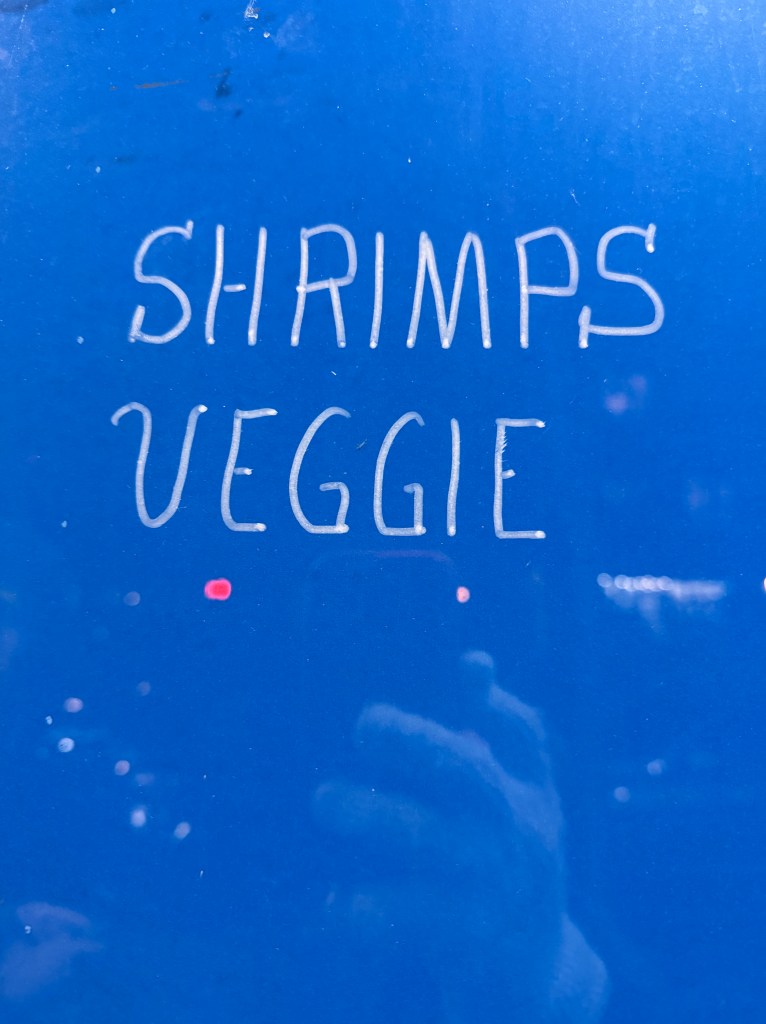 SHRIMPS
VEGGIE